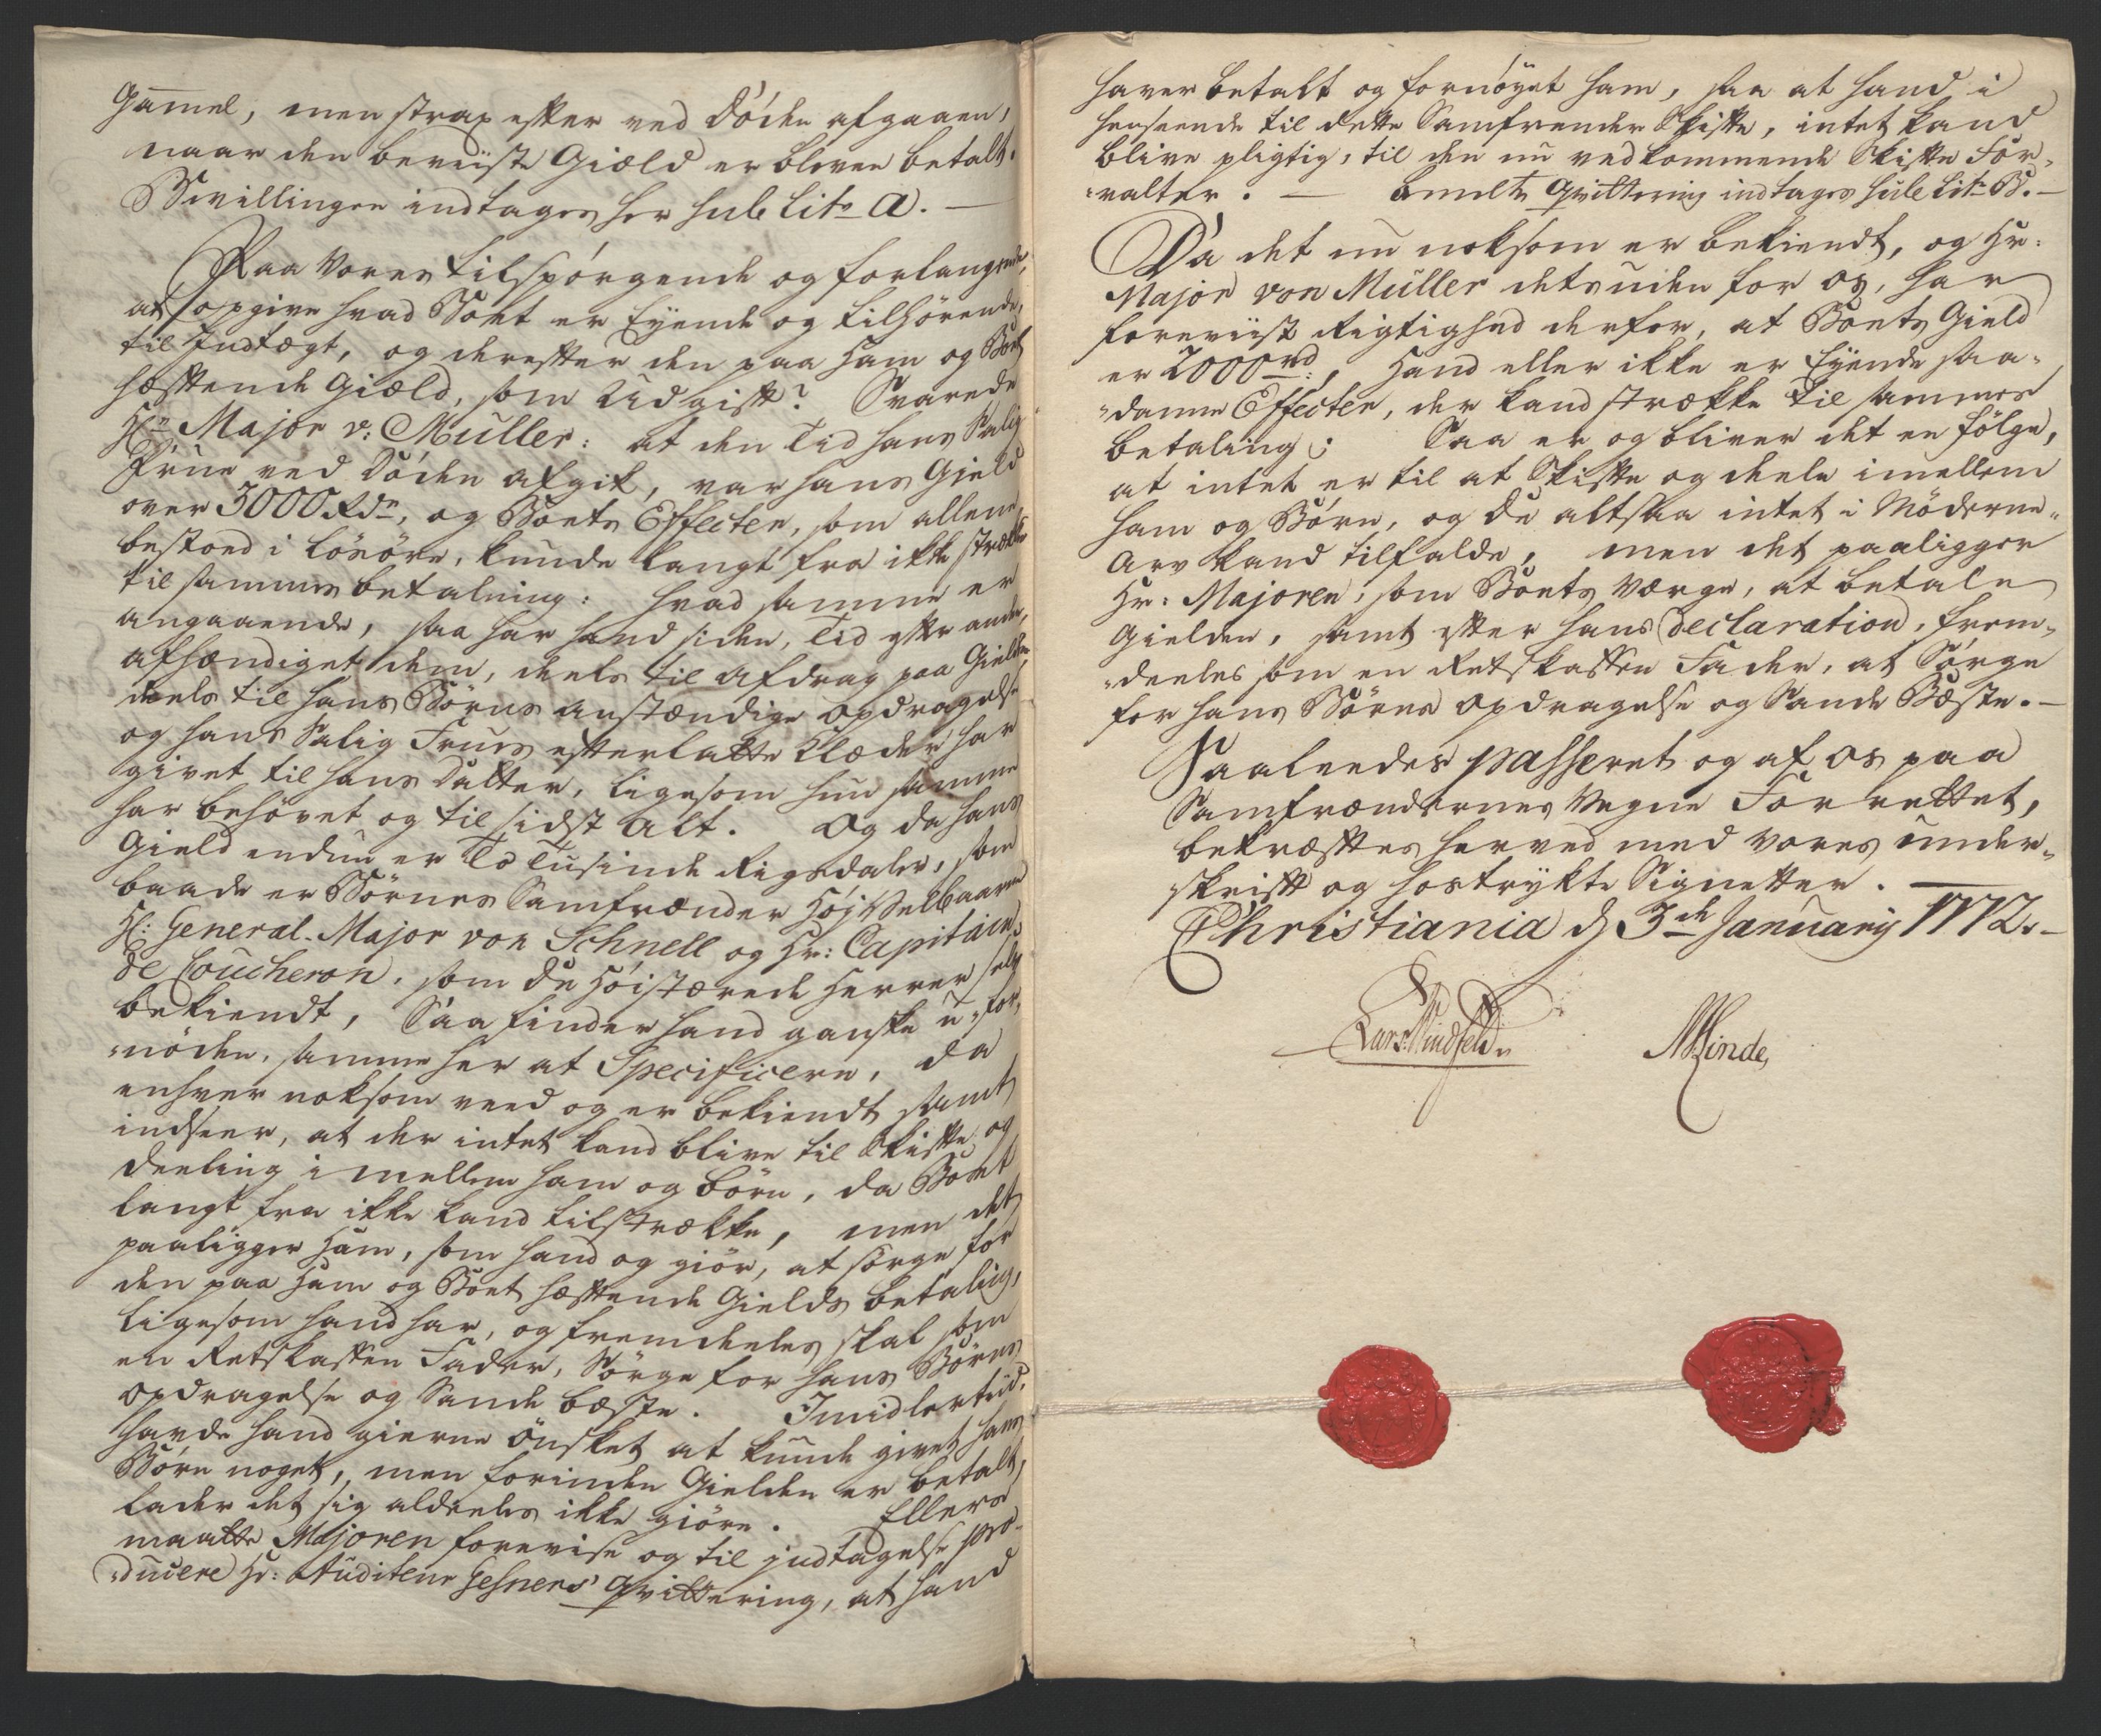 Gammel, men strax efter ved Döden afgaaen,
naar den beviiste Giæld er bleven betalt.
Bevillingen indtages her sub Lit: A. —
Paa Vores tilspörgende og forlangende,
at opgive hvad Boet er Eyende og tilhörende,
til Indtægt, og derefter den paa ham og Boet
hæftende Giæld, som Udgift? Svarede
Hr. Major v: Müller: at den Tid hans Salig
Frue ved Döden afgik, var hans Gield
over 3000 Rdr, og Boets Effecter, som allene
bestoed i Lösöre, kunde langt fra ikke strække
til sammes betalning: hvad samme er
angaaende, saa har hand siden, Tid efter anden,
afhændiget dem, deels til Afdrag paa Gielden,
deels til hans Börns anstændige Opdragelse
og hans Salig Frues efterlatte Klæder har
givet til hans Datter, ligesom hun samme
har behövet og til sidst alt. Og da hans
Gield endnu er To Tusinde Rigsdaler, som
baade er Börnes Samfrænder Höj Velbaarne
H: General-Major von Schnell og Hr: Capitain
de Coucheron, som de Höistærede Herrer selv
bekiendt, Saa finder hand ganske u-for-
"nöden, samme her at Specificere, da
enhver noksom veed og er bekiendt samt
indseer, at der intet kand blive til Skifte og
deeling i mellem ham og börn, da Boet
langt fra ikke kand tilstrække, men det
paaligger ham, som hand og giör, at sörge for
den paa ham og Boet hæftende Gields betaling,
ligesom hand har, og fremdeeles skal som
en Retskaffen Fader, Sörge for hans Börns
opdragelse og Sande bæste. Imidlertiid,
havde hand gierne önsket at kunde givet hans
Börn noget, men forinden Gielden er betalt,
lader det sig aldeeles ikke giöre. Ellers
maatte Majoren forevise og til jndtagelse pro-
"ducere Hr: Auditeur Gesners Qvittering, at hand
haver betalt og fornöyet ham, saa at hand i
henseende til dette Samfrender Skifte, intet kand
blive pligtig, til den nu vedkommende Skifte For-
"valter. — bemelte Qvittering indtages sub Lit: B. —
Da det nu noksom er bekiendt, og Hr:
Major von Müller desuden for os, har
foreviist Rigtighed derfor, at Boets Gield
er 2000 rd:, Hand eller ikke er Eyende saa-
"danne Effecter, der kand strække til sammes
betaling; Saa er og bliver det en fölge,
at intet er til at Skifte og deele imellem
ham og Börn, og de altsaa intet i Möderne-
Arv kand tilfalde, men det paaligger
Hr: Majoren, som Boets Værge, at betale
Gielden, samt efter hans Declaration, frem-
"deeles som en Retskaffen Fader, at Sörge
for hans Börns Opdragelse og Sande Bæste. —
Saaleedes passeret og af os paa
Samfrændernes Vegne Forrettet,
bekræftes herved med vores under-
skrift og hostrykte Signetter. —
Christiania d 3de January 1772. —
Lars Windfeld
NWinde,